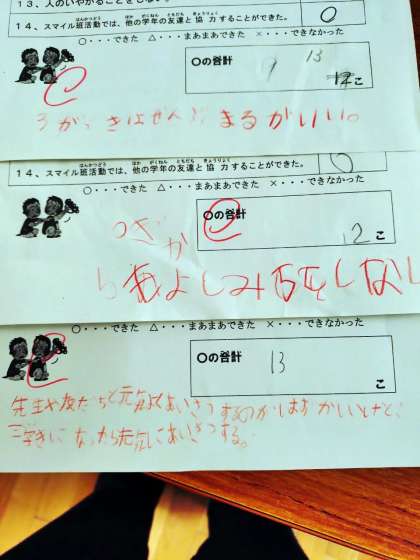 13、人のいやがることをしな
14、スマイル班活動では、他の学年の友達と協力することができた。 ○
○・・・できた △・・・まあまあできた ×・・・できなかった
○の合計
9 13 こ
3がっきはぜんぶ まるがいい。
14、スマイル班活動では、他の学年の友達と協力することができた。 ○
○・・・できた △・・・まあまあできた ×・・・できなかった
○の合計
12こ
つぎ
か
ら あよしみちをしなし
○・・・できた △・・・まあまあできた ×・・・できなかった
○の合計
13
こ
先生や友だちと元気であいさつするのが
三学きになったら元気にあいさつする。